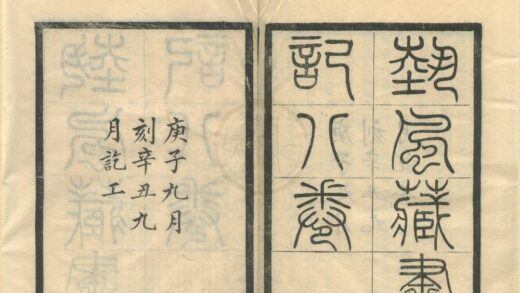 藝風藏書
記八卷
庚子九月
刻辛丑九
月訖工